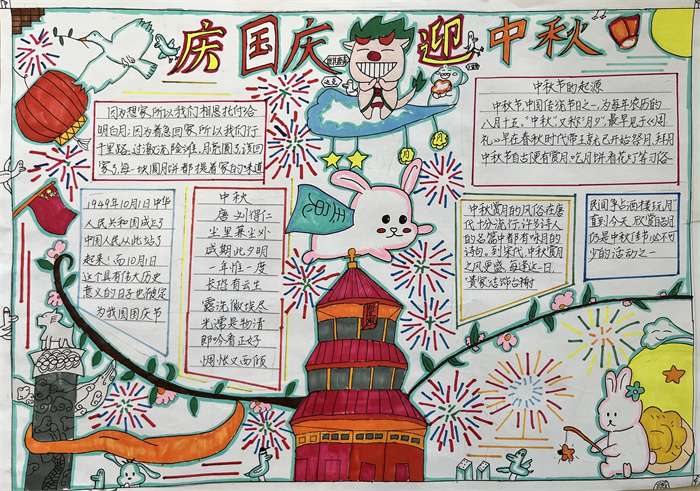 庆国庆 迎中秋
因为想家,所以我们相思托付给
明白月;因为着急回家,所以我们行
千里路,过激流险难,月圆了,该回
家了,每一块圆月饼都提着家的味道
中秋节的起源
中秋节,中国传统节日之一,为每年农历的
八月十五,"中秋"又称"月夕"最早见于《周
礼》早在春秋时代帝王就已开始祭月、拜月
中秋节自古便有赏月、吃月饼、看花灯等习俗
1949年10月1日中华
人民共和国成立了
中国人民从此站了
起来!而10月1日
这个具有伟大历史
意义的日子也被定
为我国国庆节
中秋
唐 刘得仁
尘里兼尘外
咸期此夕明
一年惟一度
长恐有云生
露洗微埃尽
光濡是物清
朗吟看正好
惆怅又西倾
中秋赏月的风俗在唐
代十分流行,许多诗人
的名篇中都有咏月的
诗句。到宋代,中秋赏月
之风更盛,每逢这一日,
"贵家结饰台榭
民间争占酒楼玩月"
直到今天,欣赏皓月
仍是中秋佳节必不可
少的活动之一